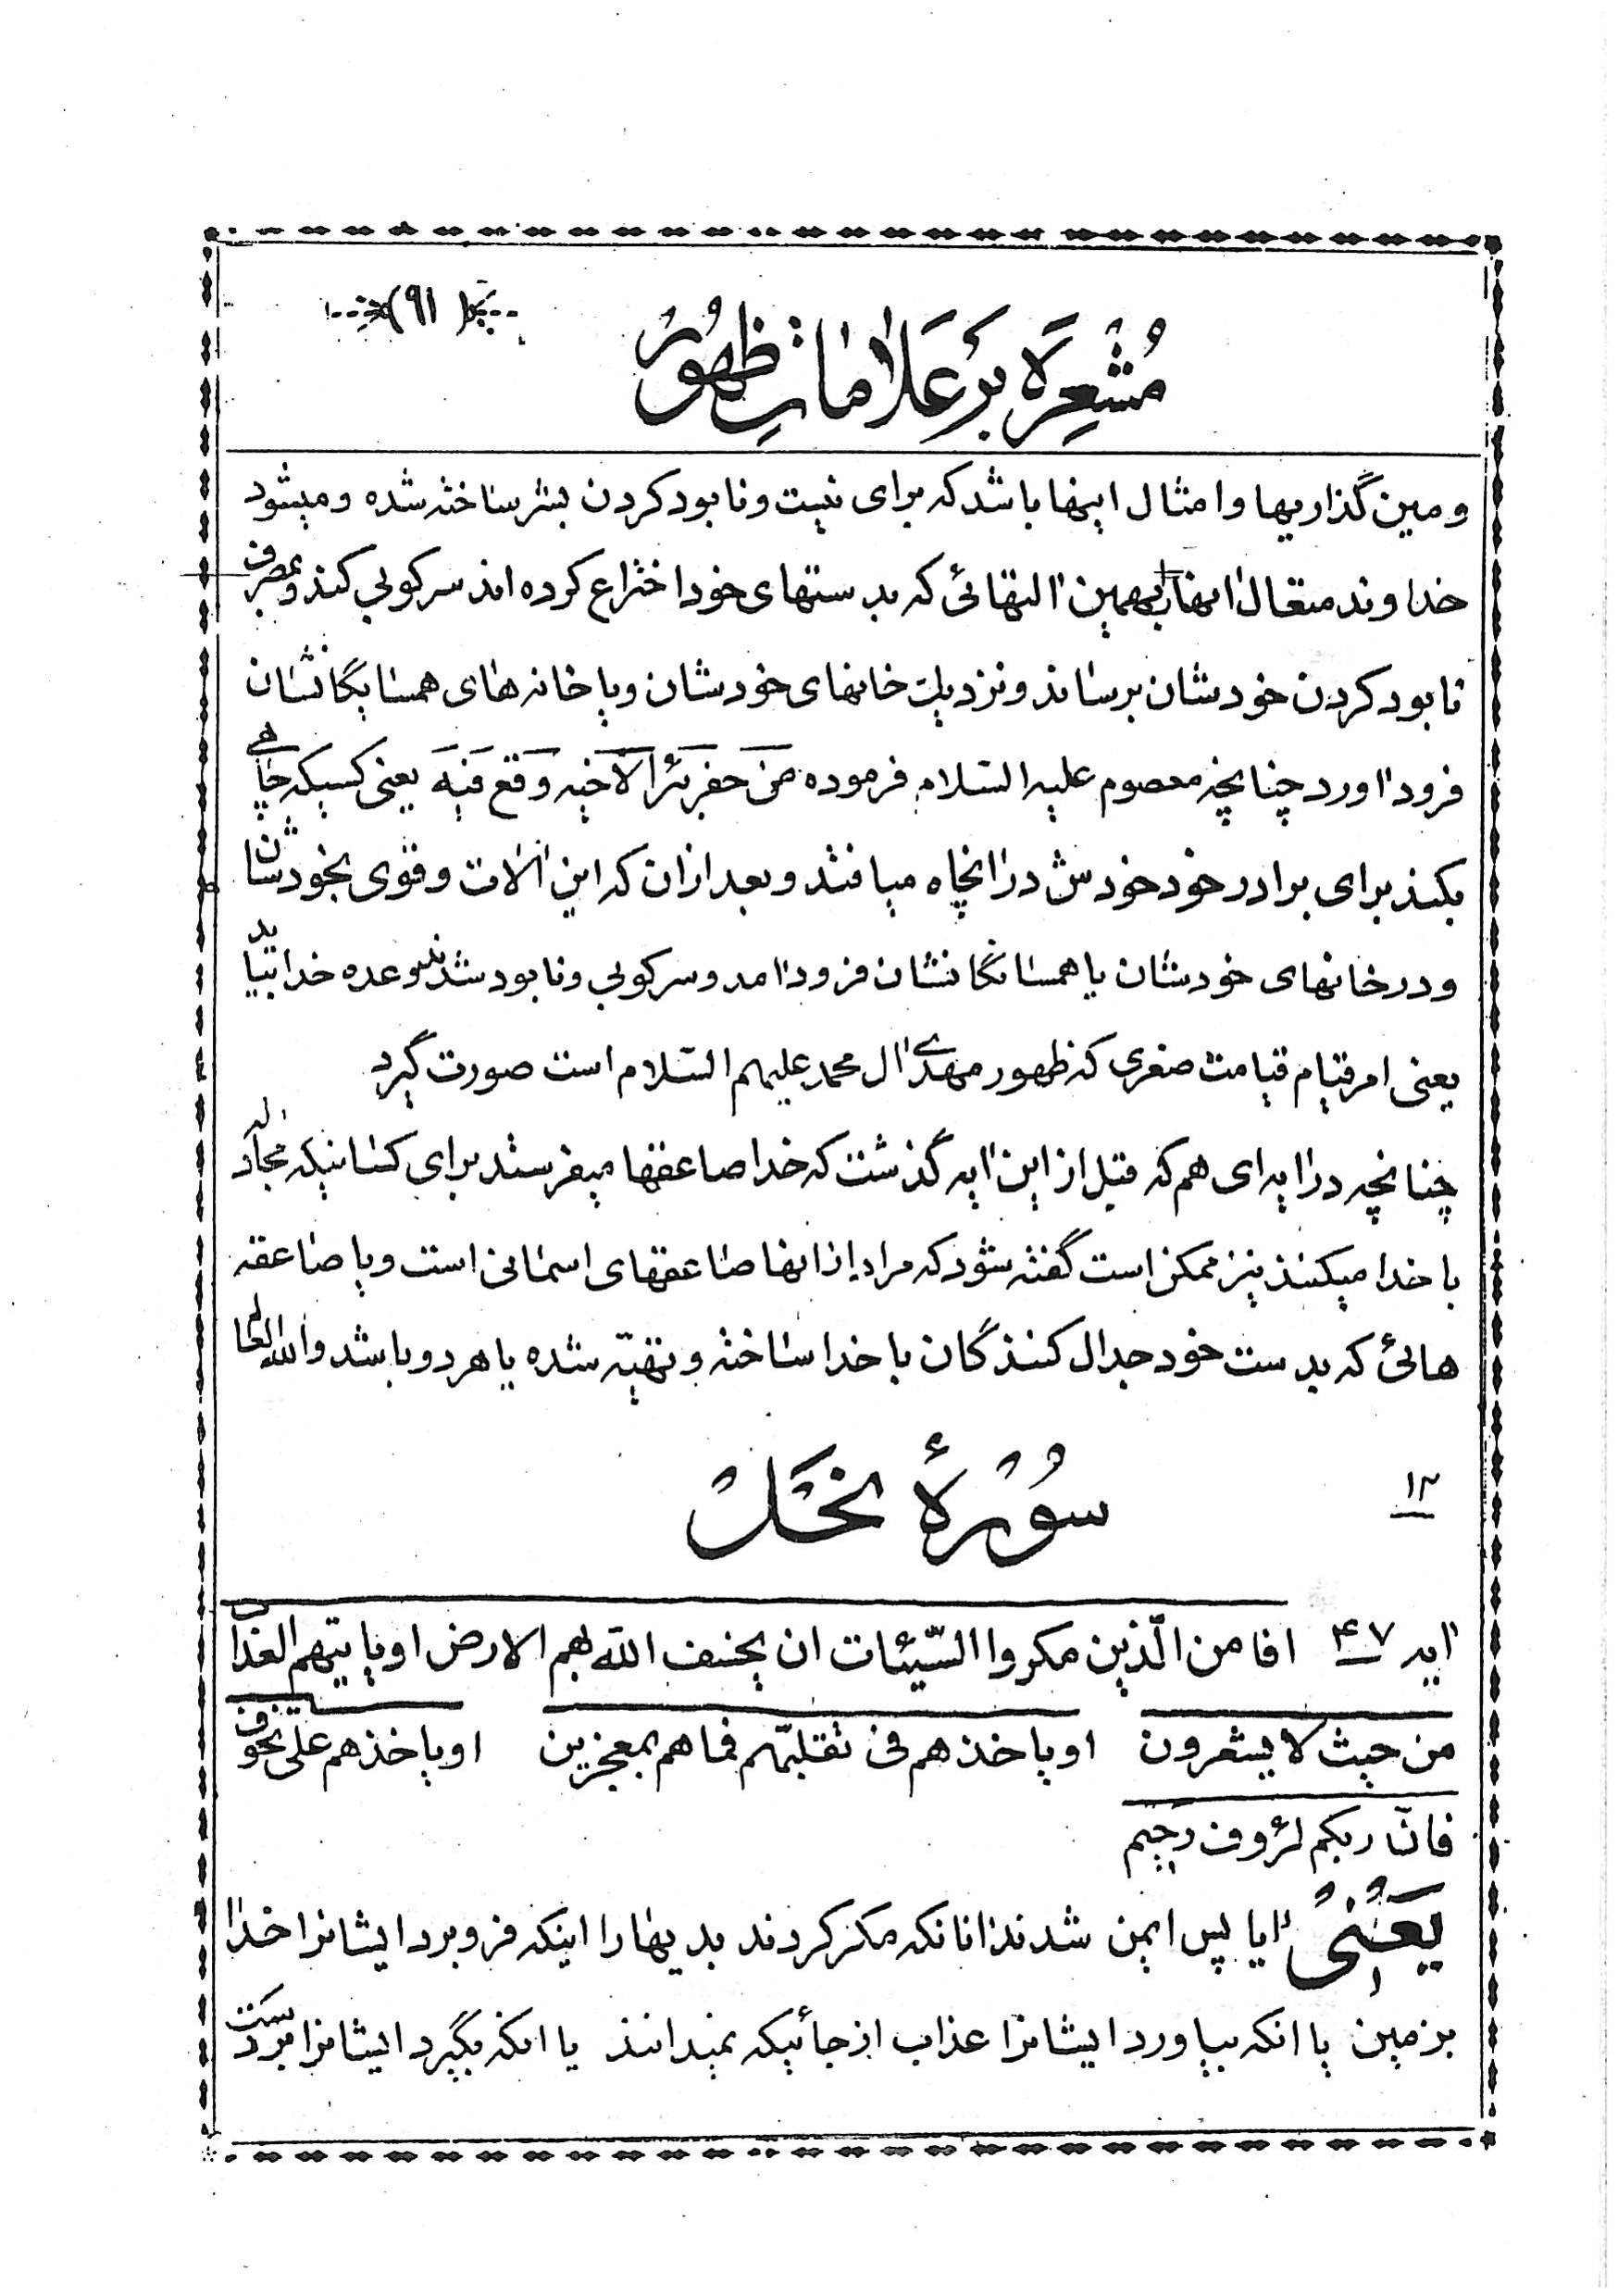 (۹۱)
مُشْعِرَه بَرْ عَلٰامٰاتِ ظُهُورْ
و مین گذاریها و امثال اینها باشد که برای نیست و نابود کردن بشر ساخته شده و میشود
خداوند متعال انها را بهمین التهائی که بدستهای خود اختراع کرده اند سرکوبی کند و بمصرف
نابود کردن خودشان برساند و نزدیک خانهای خودشان و یا خانه های همسایگانشان
فرود اورد چنانچه معصوم علیه السّلام فرموده مَن حفر بئرًا لاَخیه وَقَع فیهِ یعنی کسیکه چاهی
بکند برای برادر خود خودش در انچاه میافتد و بعد از ان که این الات و قوی بخودشان
و در خانهای خودشان یا همسایگانشان فرود امد و سرکوبی و نابود شدند وعده خدا بیاید
یعنی امر قیام قیامت صغری که ظهور مهدی ال محمد علیهم السّلام است صورت گیرد
چنانچه در ایه ای هم که قبل از این ایه گذشت که خدا صاعقها میفرستد برای کسانیکه مجادله
با خدا میکنند نیز ممکن است گفته شود که مراد از انها صاعقهای اسمانی است و یا صاعقه
هائی که بدست خود جدال کنندگان با خدا ساخته و تهیّه شده یا هر دو باشد والله العالم
۱۲ سُوْرَهٔ نَحْلْ
ایه ۴۷ افا من الّذین مکروا السّیّئات ان یخسف الله بهم الارض او یاتیهم العذاب
من حیث لا یشعرون او یاخذهم فی تقلبّهم فما هم بمعجزین او یاخذهم علی تخوّف
فانّ ربکم لرؤف رَحیم
یَعْنی ایا پس ایمن شدند انانکه مکر کردند بدیها را اینکه فرو برد ایشانرا خدا
بزمین یا انکه بیاورد ایشانرا عذاب از جائیکه نمیدانند یا انکه بگیرد ایشانرا